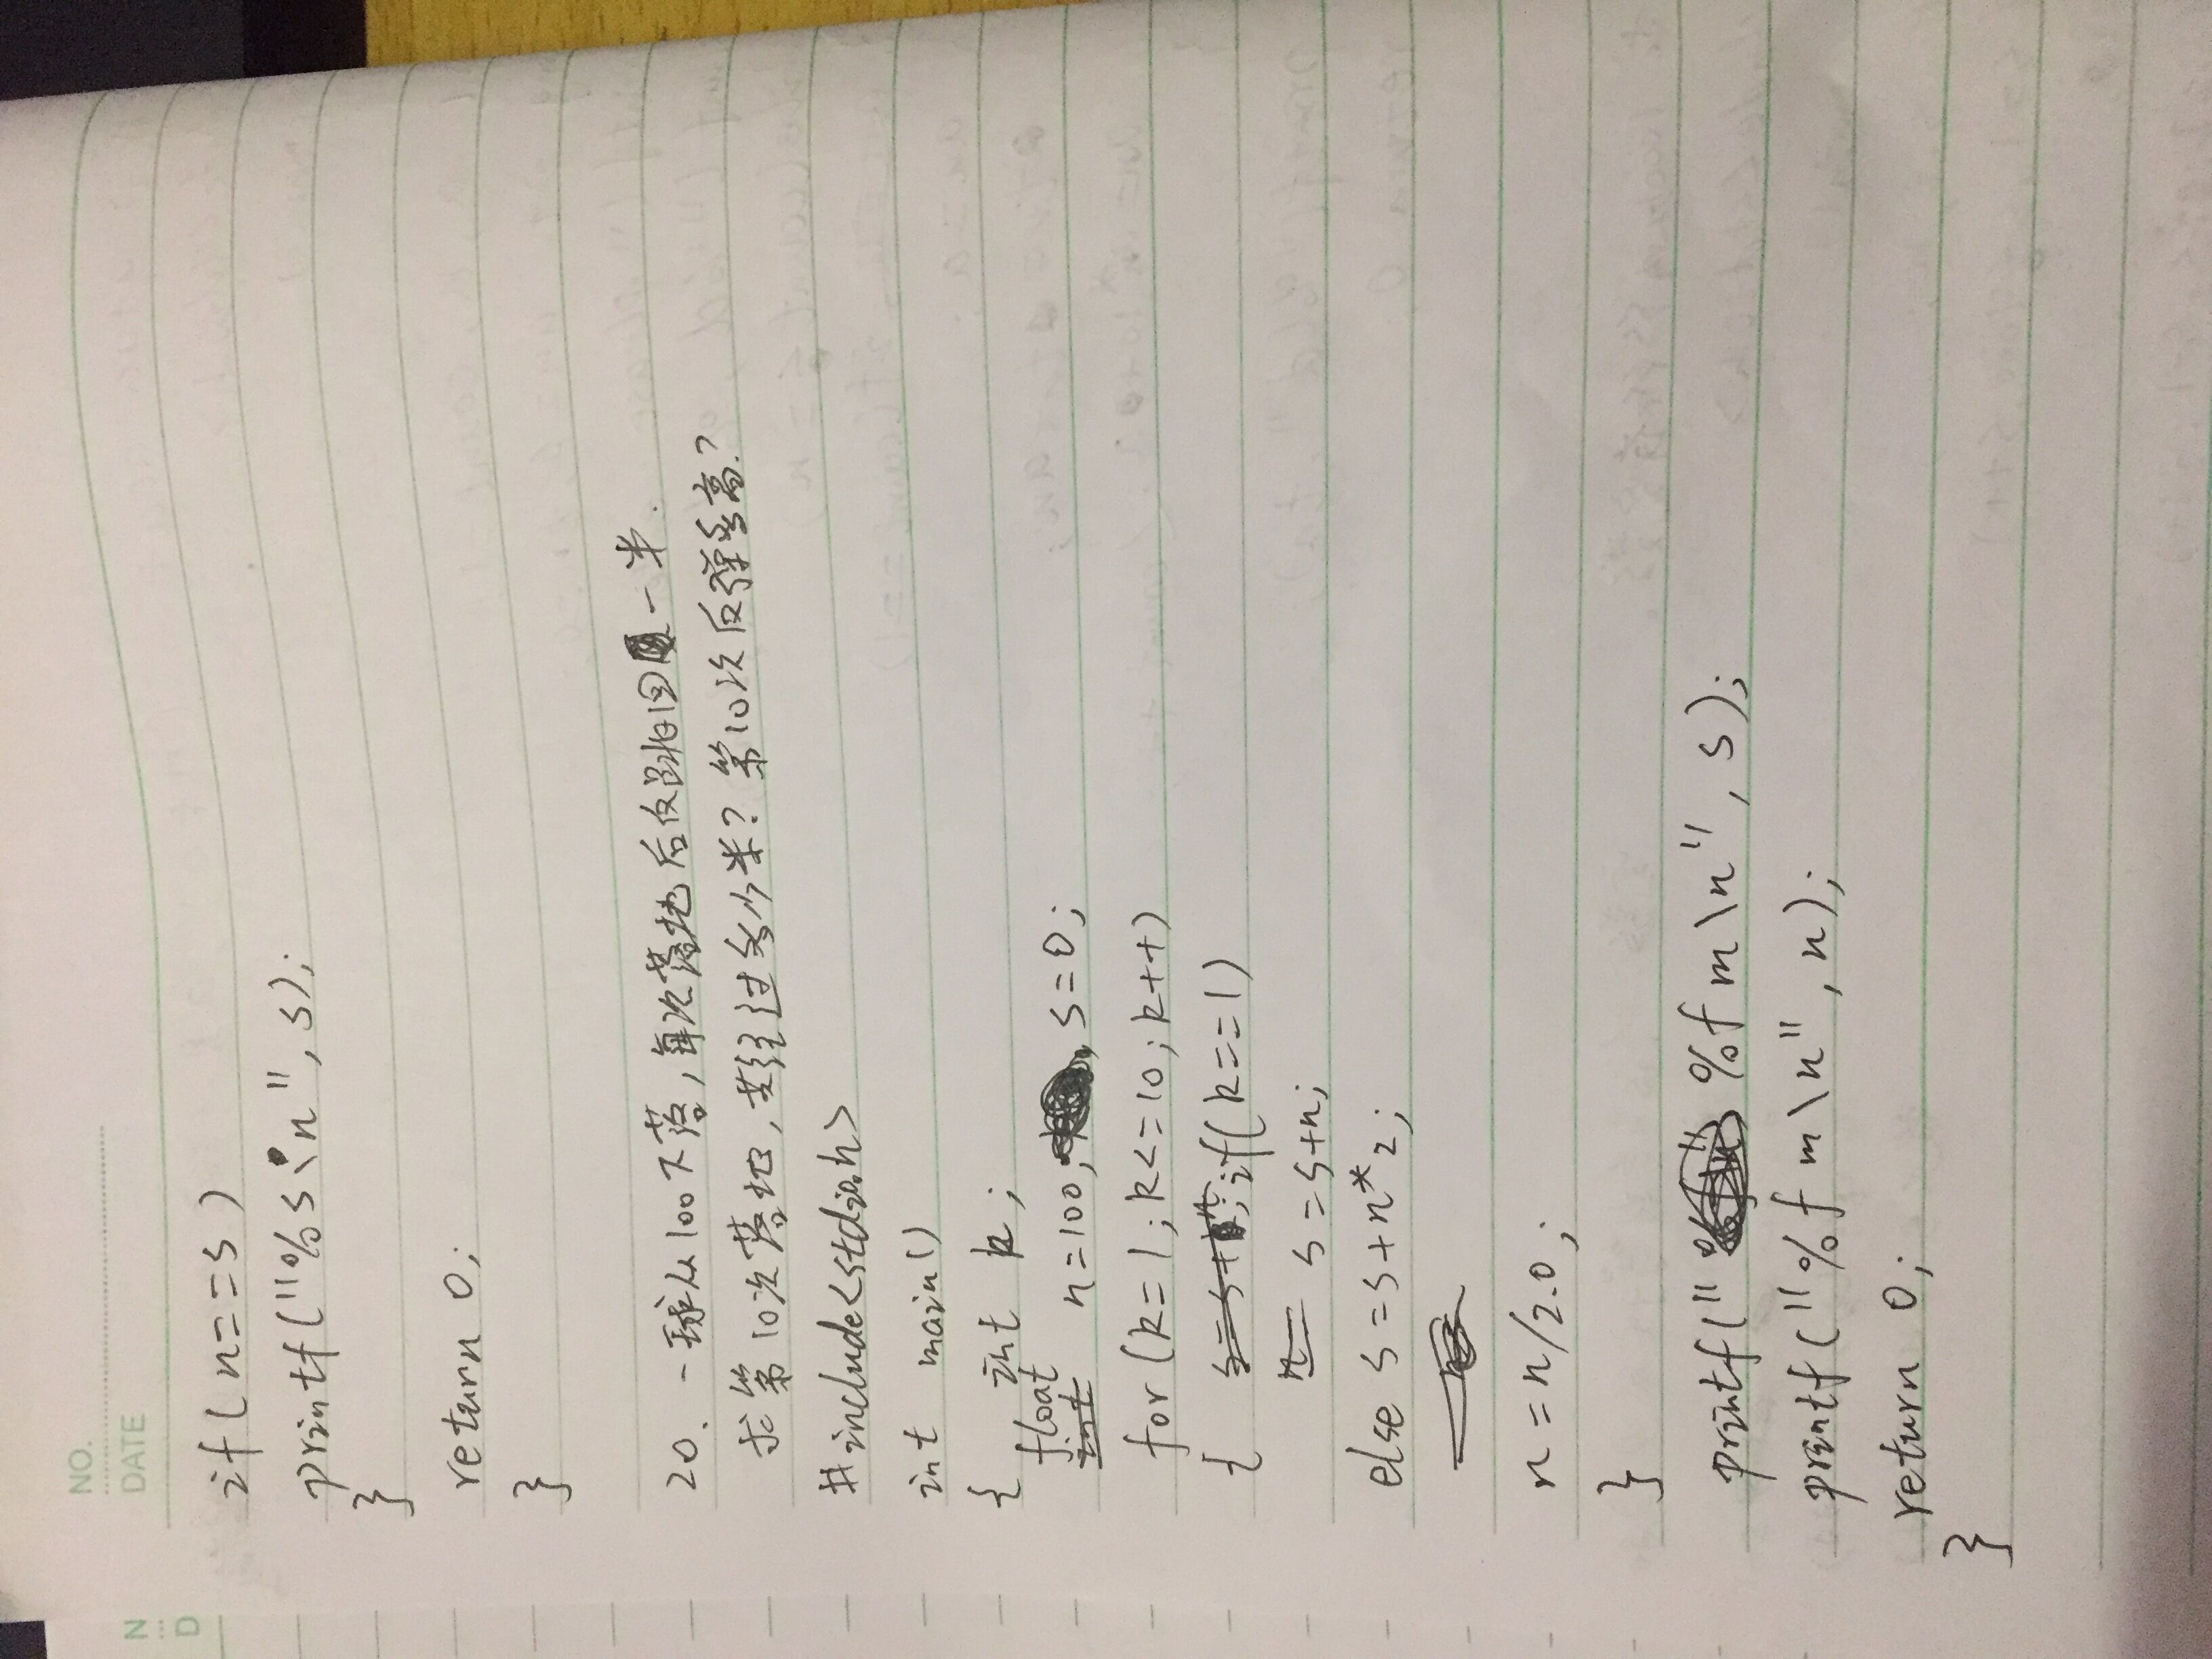 NO.
DATE
if(n==s)
printf("%s\n",s);
}
return 0;
}
20、一球从100下落,每次落地后反跳回一半.
求第10次落地,共经过多少米?第10次反弹多高?
#include<stdio.h>
int main()
{ int k;
float n=100,s=0;
for(k=1;k<=10;k++)
{ if(k==1)
s=s+n;
else s=s+n*2;
n=n/2.0;
}
printf("%f m\n",s);
printf("%f m\n",n);
return 0;
}
N
D